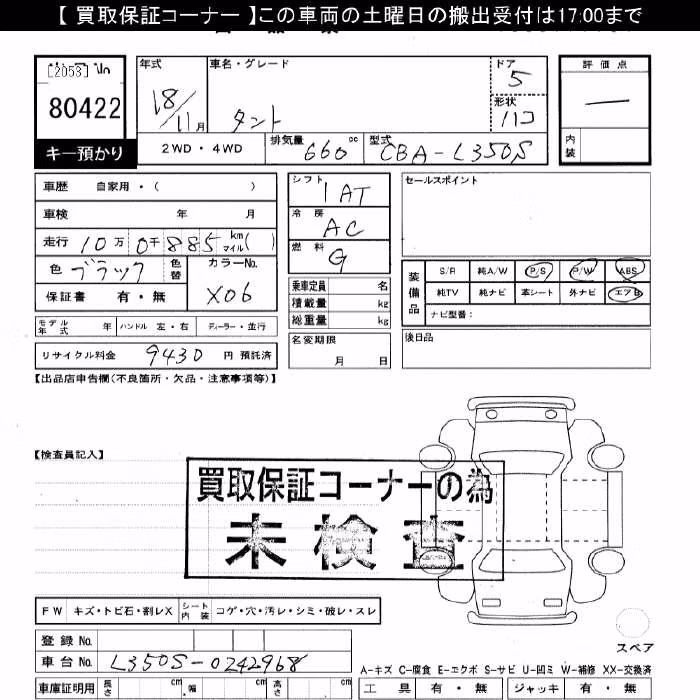 【 買取保証コーナー 】この車両の土曜日の搬出受付は17:00まで
[2053]
80422
キー預かり
年式
18/11月
車名・グレード
タント
ドア
5
形状
ハコ
2WD・4WD
排気量
660 cc
型式
CBA-L350S
評価点
—
内装
車歴 自家用・( )
車検 年 月
走行 10万 0千 885 km マイル( )
色 ブラック 色替
カラーNo.
X06
保証書 有・無
モデル年式 年 ハンドル 左・右 ディーラー・並行
リサイクル料金 9430 円 預託済
シフト
IAT
冷房
AC
燃料
G
乗車定員 名
積載量 kg
総重量 kg
名変期限
月 日
セールスポイント
装備品
S/R 純A/W P/S P/W ABS
純TV 純ナビ 革シート 外ナビ エアB
ナビ型番:
後日品
【出品店申告欄(不良箇所・欠品・注意事項等)】
【検査員記入】
買取保証コーナーの為
未検査
FW キズ・トビ石・割レX シート内装 コゲ・穴・汚レ・シミ・破レ・スレ
スペア
登録 No.
車台 No. L350S-0242968
A-キズ C-腐食 E-エクボ S-サビ U-凹ミ W-補修 XX-交換済
車庫証明用 長さ cm 幅 cm 高さ cm
工具 有・無 ジャッキ 有・無